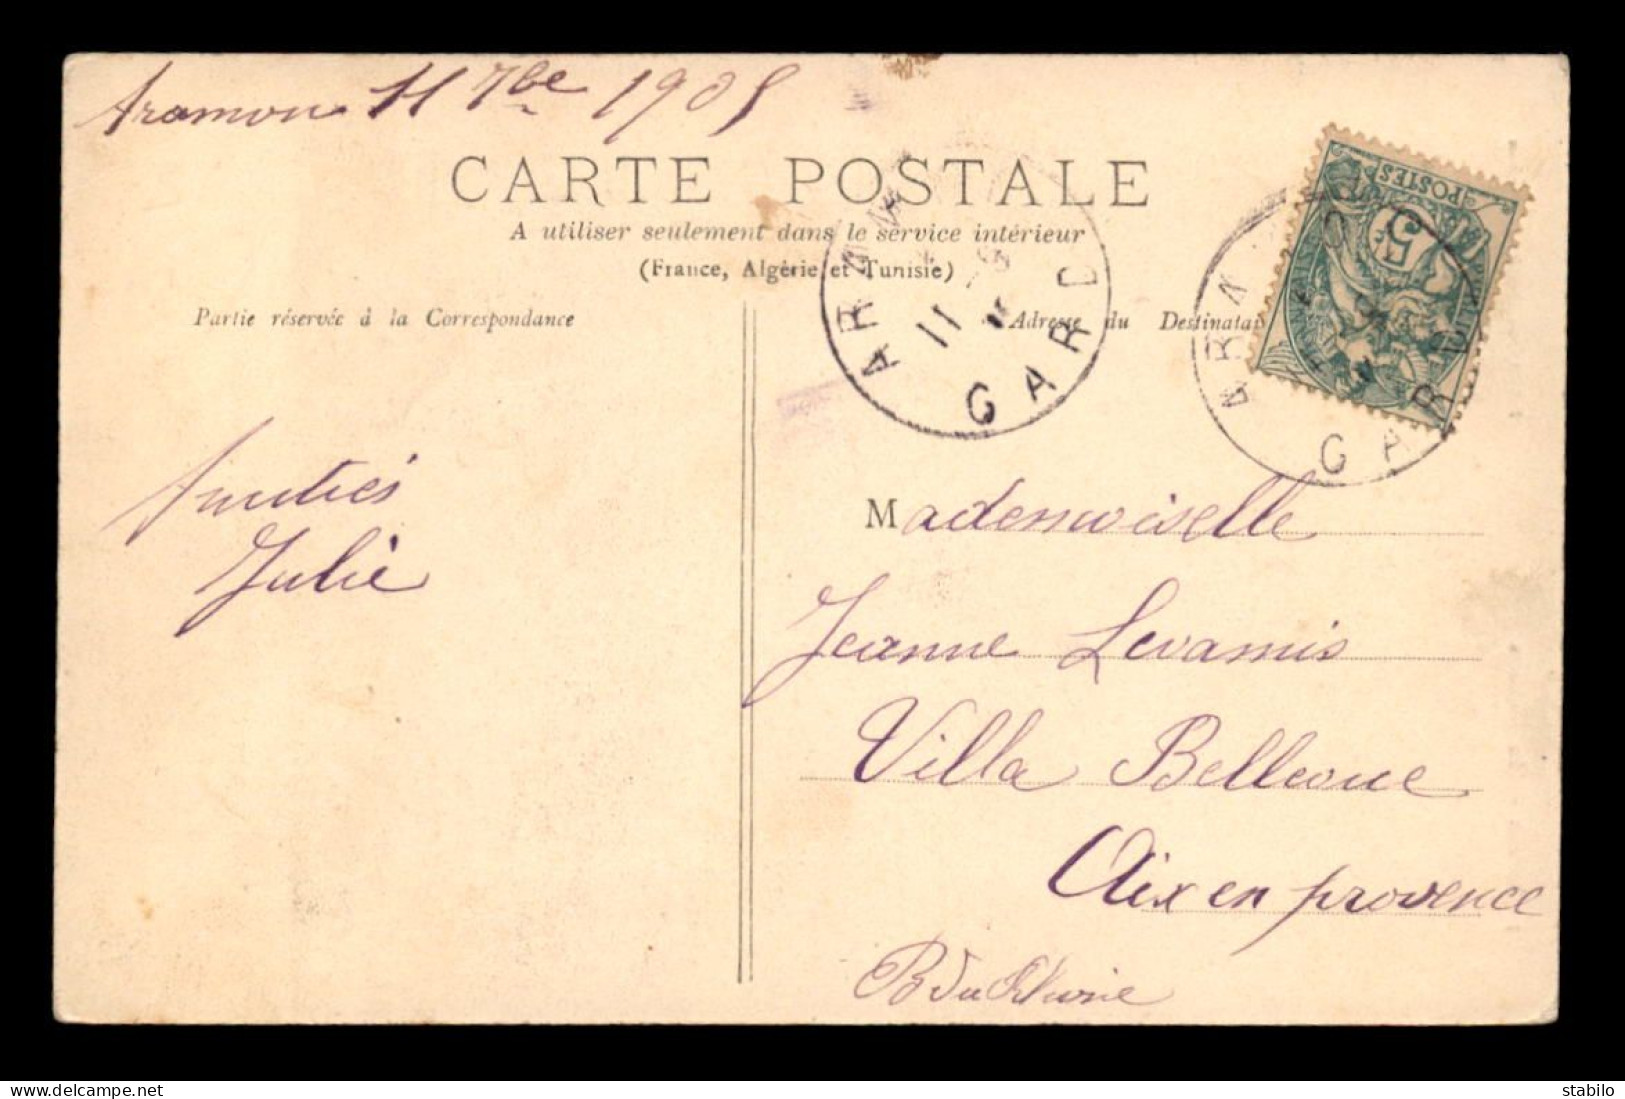 Aramon 11 7bre 1905
CARTE POSTALE
A utiliser seulement dans le service intérieur
(France, Algérie et Tunisie)
Partie réservée à la Correspondance
Adresse du Destinatai
ARAM
11 -9
GARD
POSTES
5
ARAM
GARD
Amitiés
Julie
Mademoiselle
Jeanne Levamis
Villa Bellevue
Aix en provence
B du
stabilo
www.delcampe.net